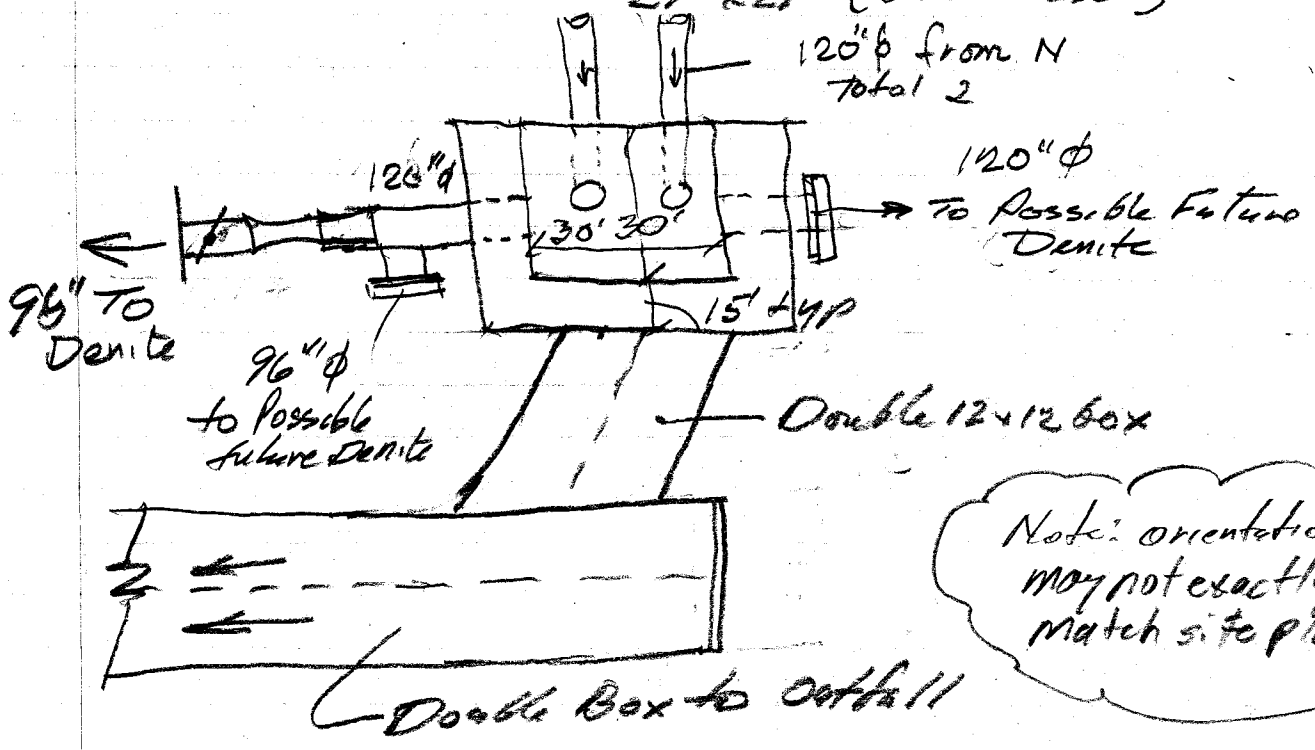 120"ϕ from N
Total 2
120"ϕ
To Possible Future
Denite
120"ϕ
30' 30'
15' typ
96" To
Denite
96"ϕ
to Possible
future Denite
Double 12x12 box
Note:
may not
match site
Double Box to Outfall